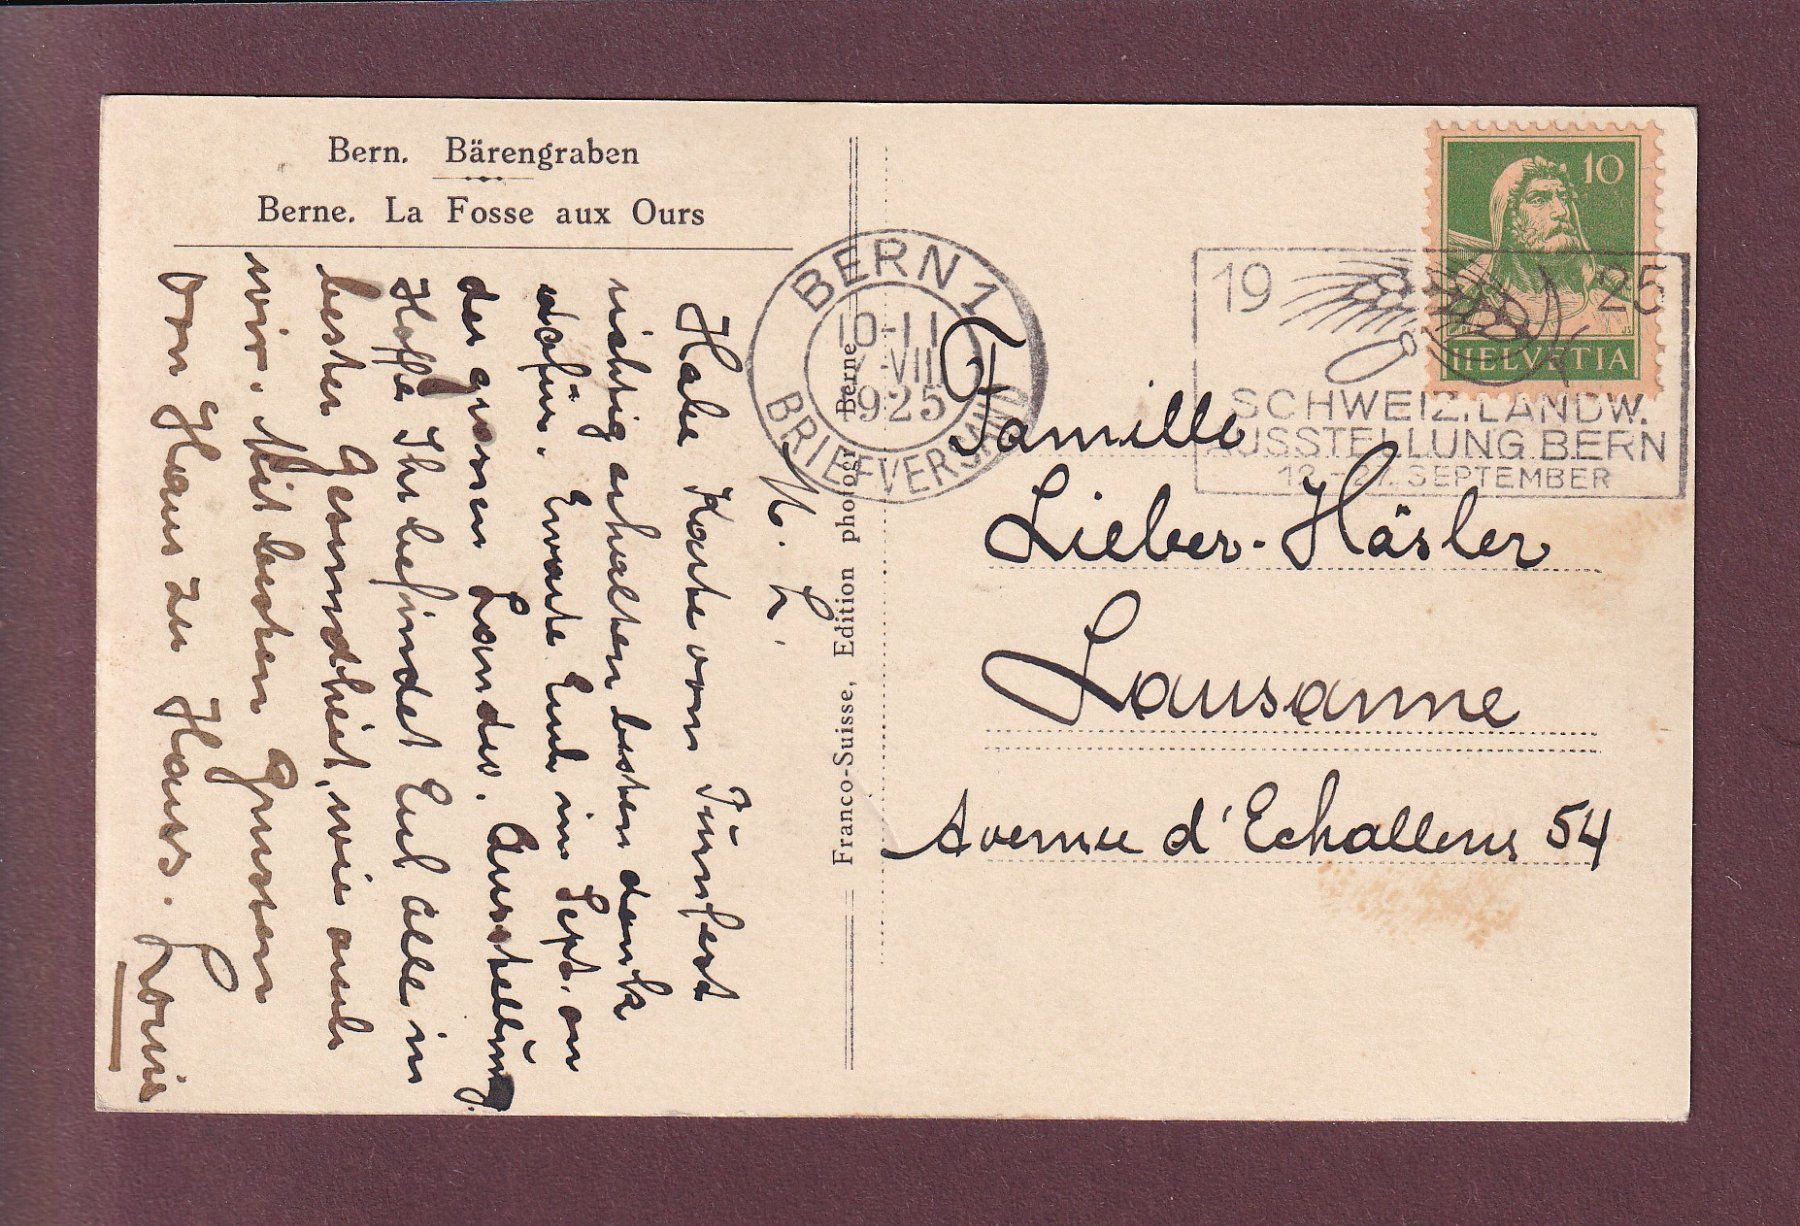 Bern. Bärengraben
Berne. La Fosse aux Ours
Franco-Suisse, Edition photogr. Berne
BERN 1
10-11
VIII
1925
BRIEFVERSAND
19 25
SCHWEIZ. LANDW.
AUSSTELLUNG BERN
12.-27. SEPTEMBER
10
HELVETIA
Famille
Lieber-Häsler
Lausanne
Avenue d'Echallens 54
N. L.
Habe Karte von
richtig erhalten besten dank
dafür. Erwarte Euch im Sept. an
der grossen Landw. Ausstellung.
Hoffe Ihr befindet Euch Alle in
bester Gesundheit, wie auch
wir. Mit besten Grüssen
von Haus zu Haus. Louis